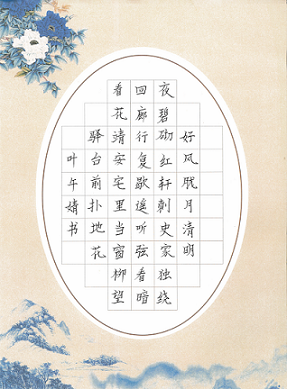 好风胧月清明
夜碧砌红轩刺史家独绕
回廊行复歇遥听弦看暗
看花靖安宅里当窗柳望
驿台前扑地花
叶午婧书